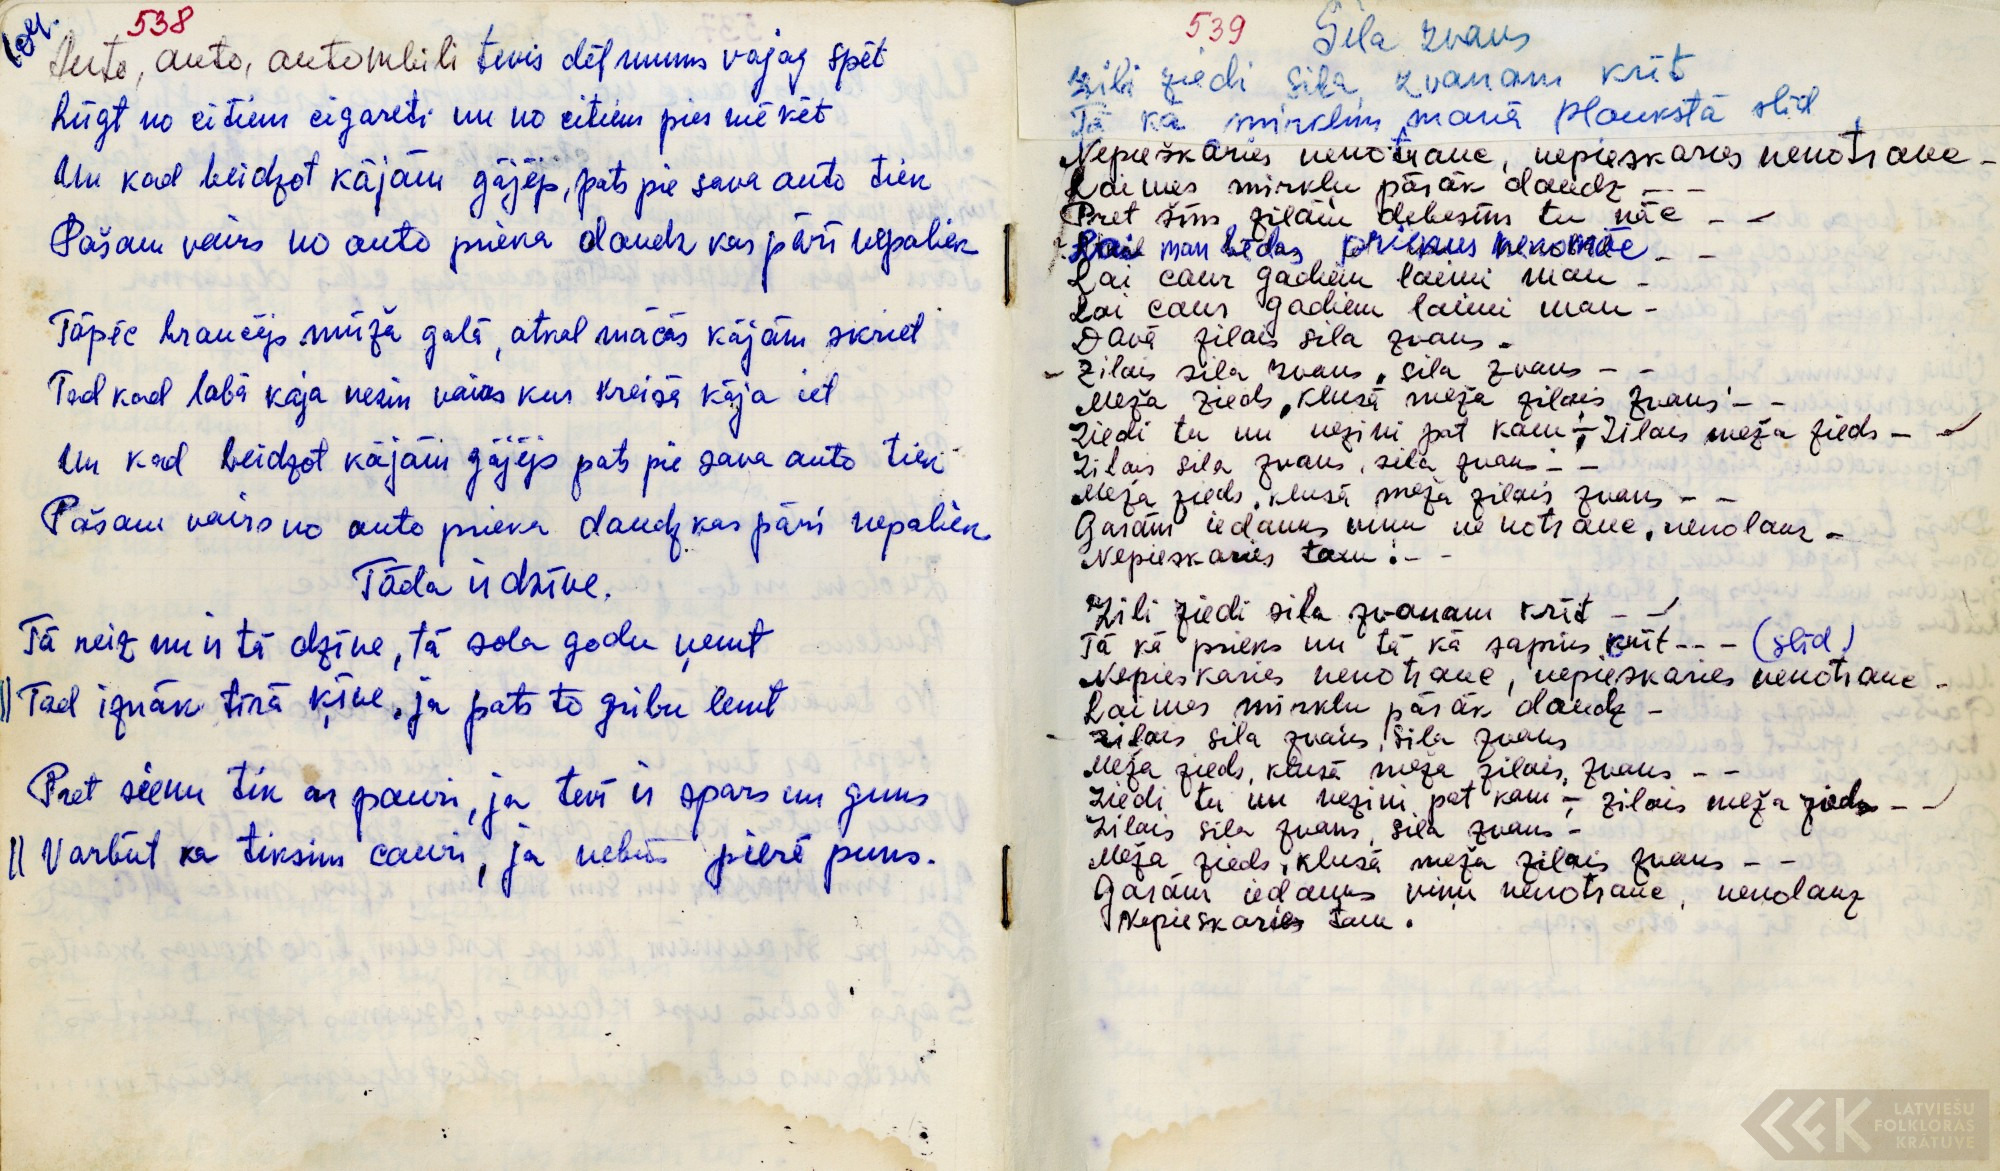 538
Auto, auto, automobili tevis dēļ mums vajag spēt
Lūgt no citiem cigareti un no citiem pīes mēkēt
Un kad beidzot kājām gājējs, pats pie sava auto tiek
Pašam vairs no auto prieka daudz kas pāri nepaliek
Tāpēc braucējs mūža galā, atkal mācās kājām skriet
Tad kad labā kāja nezin vairs kur kreisā kāja iet
Un kad beidzot kājām gājējs pats pie sava auto tiek
Pašam vairs no auto prieka daudz kas pāri nepaliek
Tāda ir dzīve.
Tā reiz nu ir tā dzīve, tā sola godu ņemt
|| Tad iznāk tīrā ķīve, ja pats to gribu lemt
Pret sienu tik ar pauri, ja tevī ir spars un guns
|| Varbūt ka tiksim cauri, ja nebūs pierē puns.
539
Sila zvans
Zili ziedi sila zvanam krīt
Tā kā mirklim manā plaukstā slīd
Nepieskaries nenotrauc, nepieskaries nenotrauc -
Laimes mirkļu pārāk daudz - -
Pret šīm zilām debesīm tu nāc - -
Lai man bēdas priekus nenomāc - -
Lai caur gadiem laimi man -
Lai caur gadiem laimi man -
Davā zilais sila zvans -
- Zilais sila zvans, sila zvans - -
Meža zieds, klusā meža zilais zvans - -
Ziedi tu un nezini pat kam - Zilais meža zieds - -
Zilais sila zvans, sila zvans - -
Meža zieds, klusā meža zilais zvans - -
Garām iedams viņu nenotrauc, nenolauz -
Nepieskaries tam! - -
Zili ziedi sila zvanam krīt - -
Tā kā prieks un tā kā sapnis krīt - - - (slīd)
Nepieskaries nenotrauc, nepieskaries nenotrauc -
Laimes mirkļu pārāk daudz -
- Zilais sila zvans, sila zvans
Meža zieds, klusā meža zilais, zvans - -
Ziedi tu un nezini pat kam - zilais meža zieds - -
Zilais sila zvans, sila zvans -
Meža zieds, klusā meža zilais zvans - -
Garām iedams viņu nenotrauc, nenolauz
Nepieskaries tam.
LATVIEŠU
FOLKLORAS
KRĀTUVE